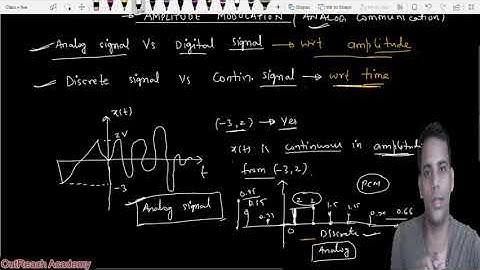 Class + live
Ink to Shape
Ink to Math
→ AMPLITUDE MODULATION (ANALOG Communication)
Analog signal Vs Digital signal → wrt amplitude
Discrete signal vs Contin. signal → wrt time
x(t)
2V
-3
t
Analog signal
(-3,2) → Yes
x(t) is continuous in amplitude
from (-3,2)
PCM
0.15
2 2
1.5 1.5
0.66
0
Discrete
Analog
OutReach Academy